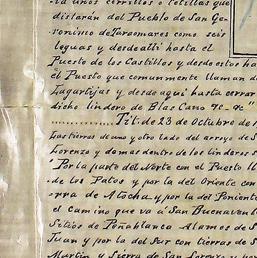 -ra unos cerrillos o cetillas que
distarán del Pueblo de San Ge-
ronimo de Taraomares como seis
leguas y desde alli hasta el
Puesto de los Castillos y desde estos ha
el Puesto que comunmente llaman d
Lagartijas y desde aqui hasta cerrar
dicho lindero de Blas Cano &c. &c"
Tit. de 23 de Octubre de 1
Las tierras de uno y otro lado del arroyo de S
Lorenzo y demas dentro de los linderos s
"Por la parte del Norte con el Puesto ll
de los Patos y por la del Oriente con
erra de Atocha y por la del Poniente
el camino que va á San Buenavent
Sitios de Peñablanca Alamos de S
Juan y por la del Sur con tierras de S
Martin y Sierra de San Lorenzo y por